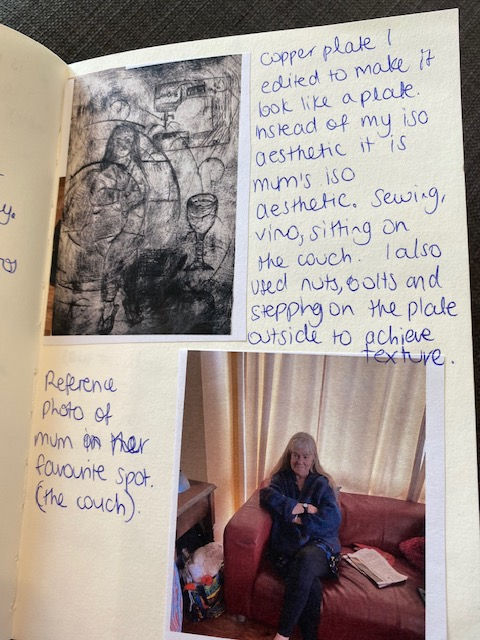 y.
Copper plate I
edited to make it
look like a plate.
Instead of my iso
aesthetic it is
mum's iso
aesthetic. Sewing,
vino, sitting on
the couch. I also
used nuts, bolts and
stepping on the plate
outside to achieve
texture.
Reference
photo of
mum in her
favourite spot.
(the couch).